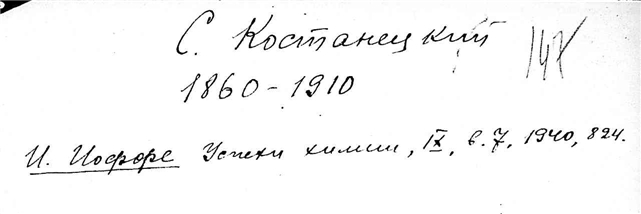 С. Костанецкий 147
1860-1910
И. Иоффе Успехи химии, IX, в. 7, 1940, 824.